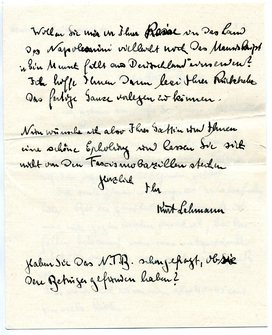 Wollen Sie mir vor Ihrer Reise in das Land
des Napoleonini vielleicht noch das Manuskript
„Ein Mann fällt aus Deutschland" zusenden?
Ich hoffe Ihnen dann bei Ihrer Rückkehr
das fertige Ganze vorlegen zu können.
Nun wünsche ich also Ihrer Gattin und Ihnen
eine schöne Erholung und lassen Sie sich
nicht von den Faszismobazillen stechen
Herzlich
Ihr
Kurt Lehmann
Haben Sie das N.T.B. schon gefragt, ob sie
den Betrüger gefunden haben?